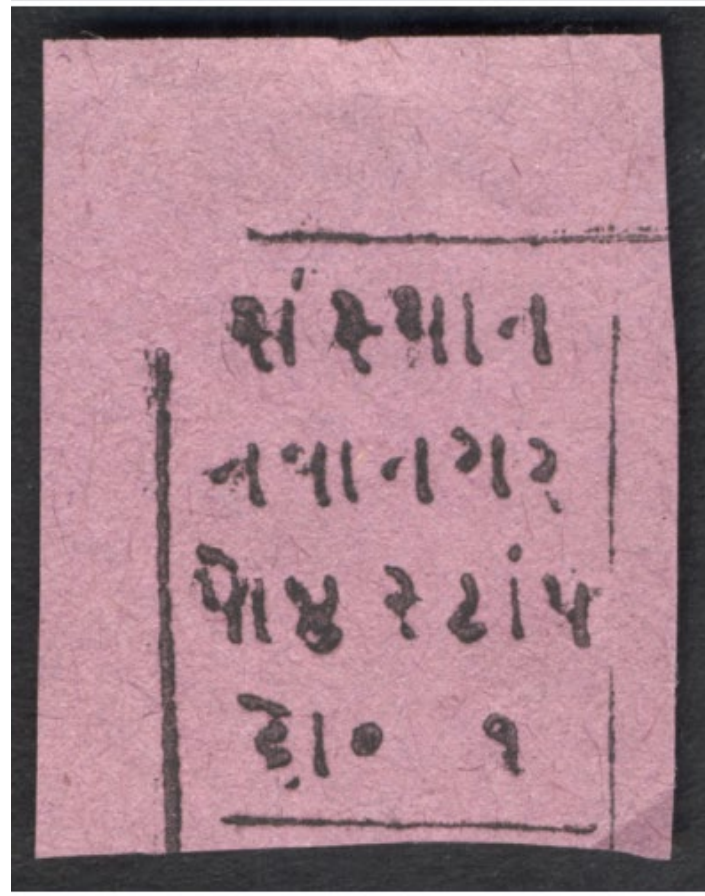 સંસ્થાન
નવાનગર
પોષ્ટ સ્ટાંપ
દો૦ ૧